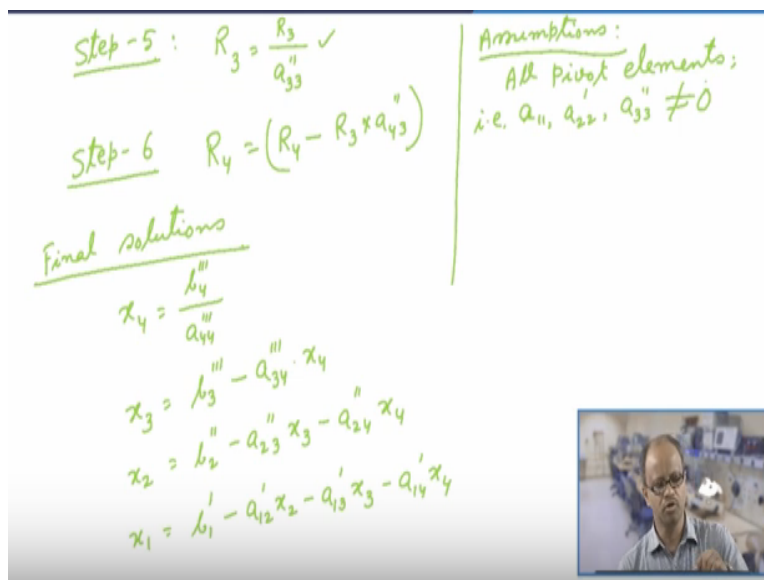 Step-5 : R₃ = R₃ / a₃₃'' ✓
Step-6 R₄ = (R₄ - R₃ * a₄₃'')
Final solutions
x₄ = b₄''' / a₄₄'''
x₃ = b₃''' - a₃₄''' · x₄
x₂ = b₂'' - a₂₃'' x₃ - a₂₄'' x₄
x₁ = b₁' - a₁₂' x₂ - a₁₃' x₃ - a₁₄' x₄
Assumptions:
All pivot elements;
i.e. a₁₁, a₂₂', a₃₃'' ≠ 0